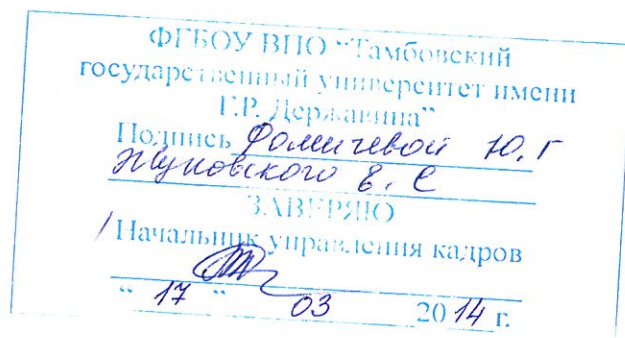 ФГБОУ ВПО “Тамбовский
государственный университет имени
Г.Р. Державина”
Подпись Фомичевой Ю.Г
Жуковского Е.С
ЗАВЕРЯЮ
Начальник управления кадров
“ 17 ” 03 2014 г.